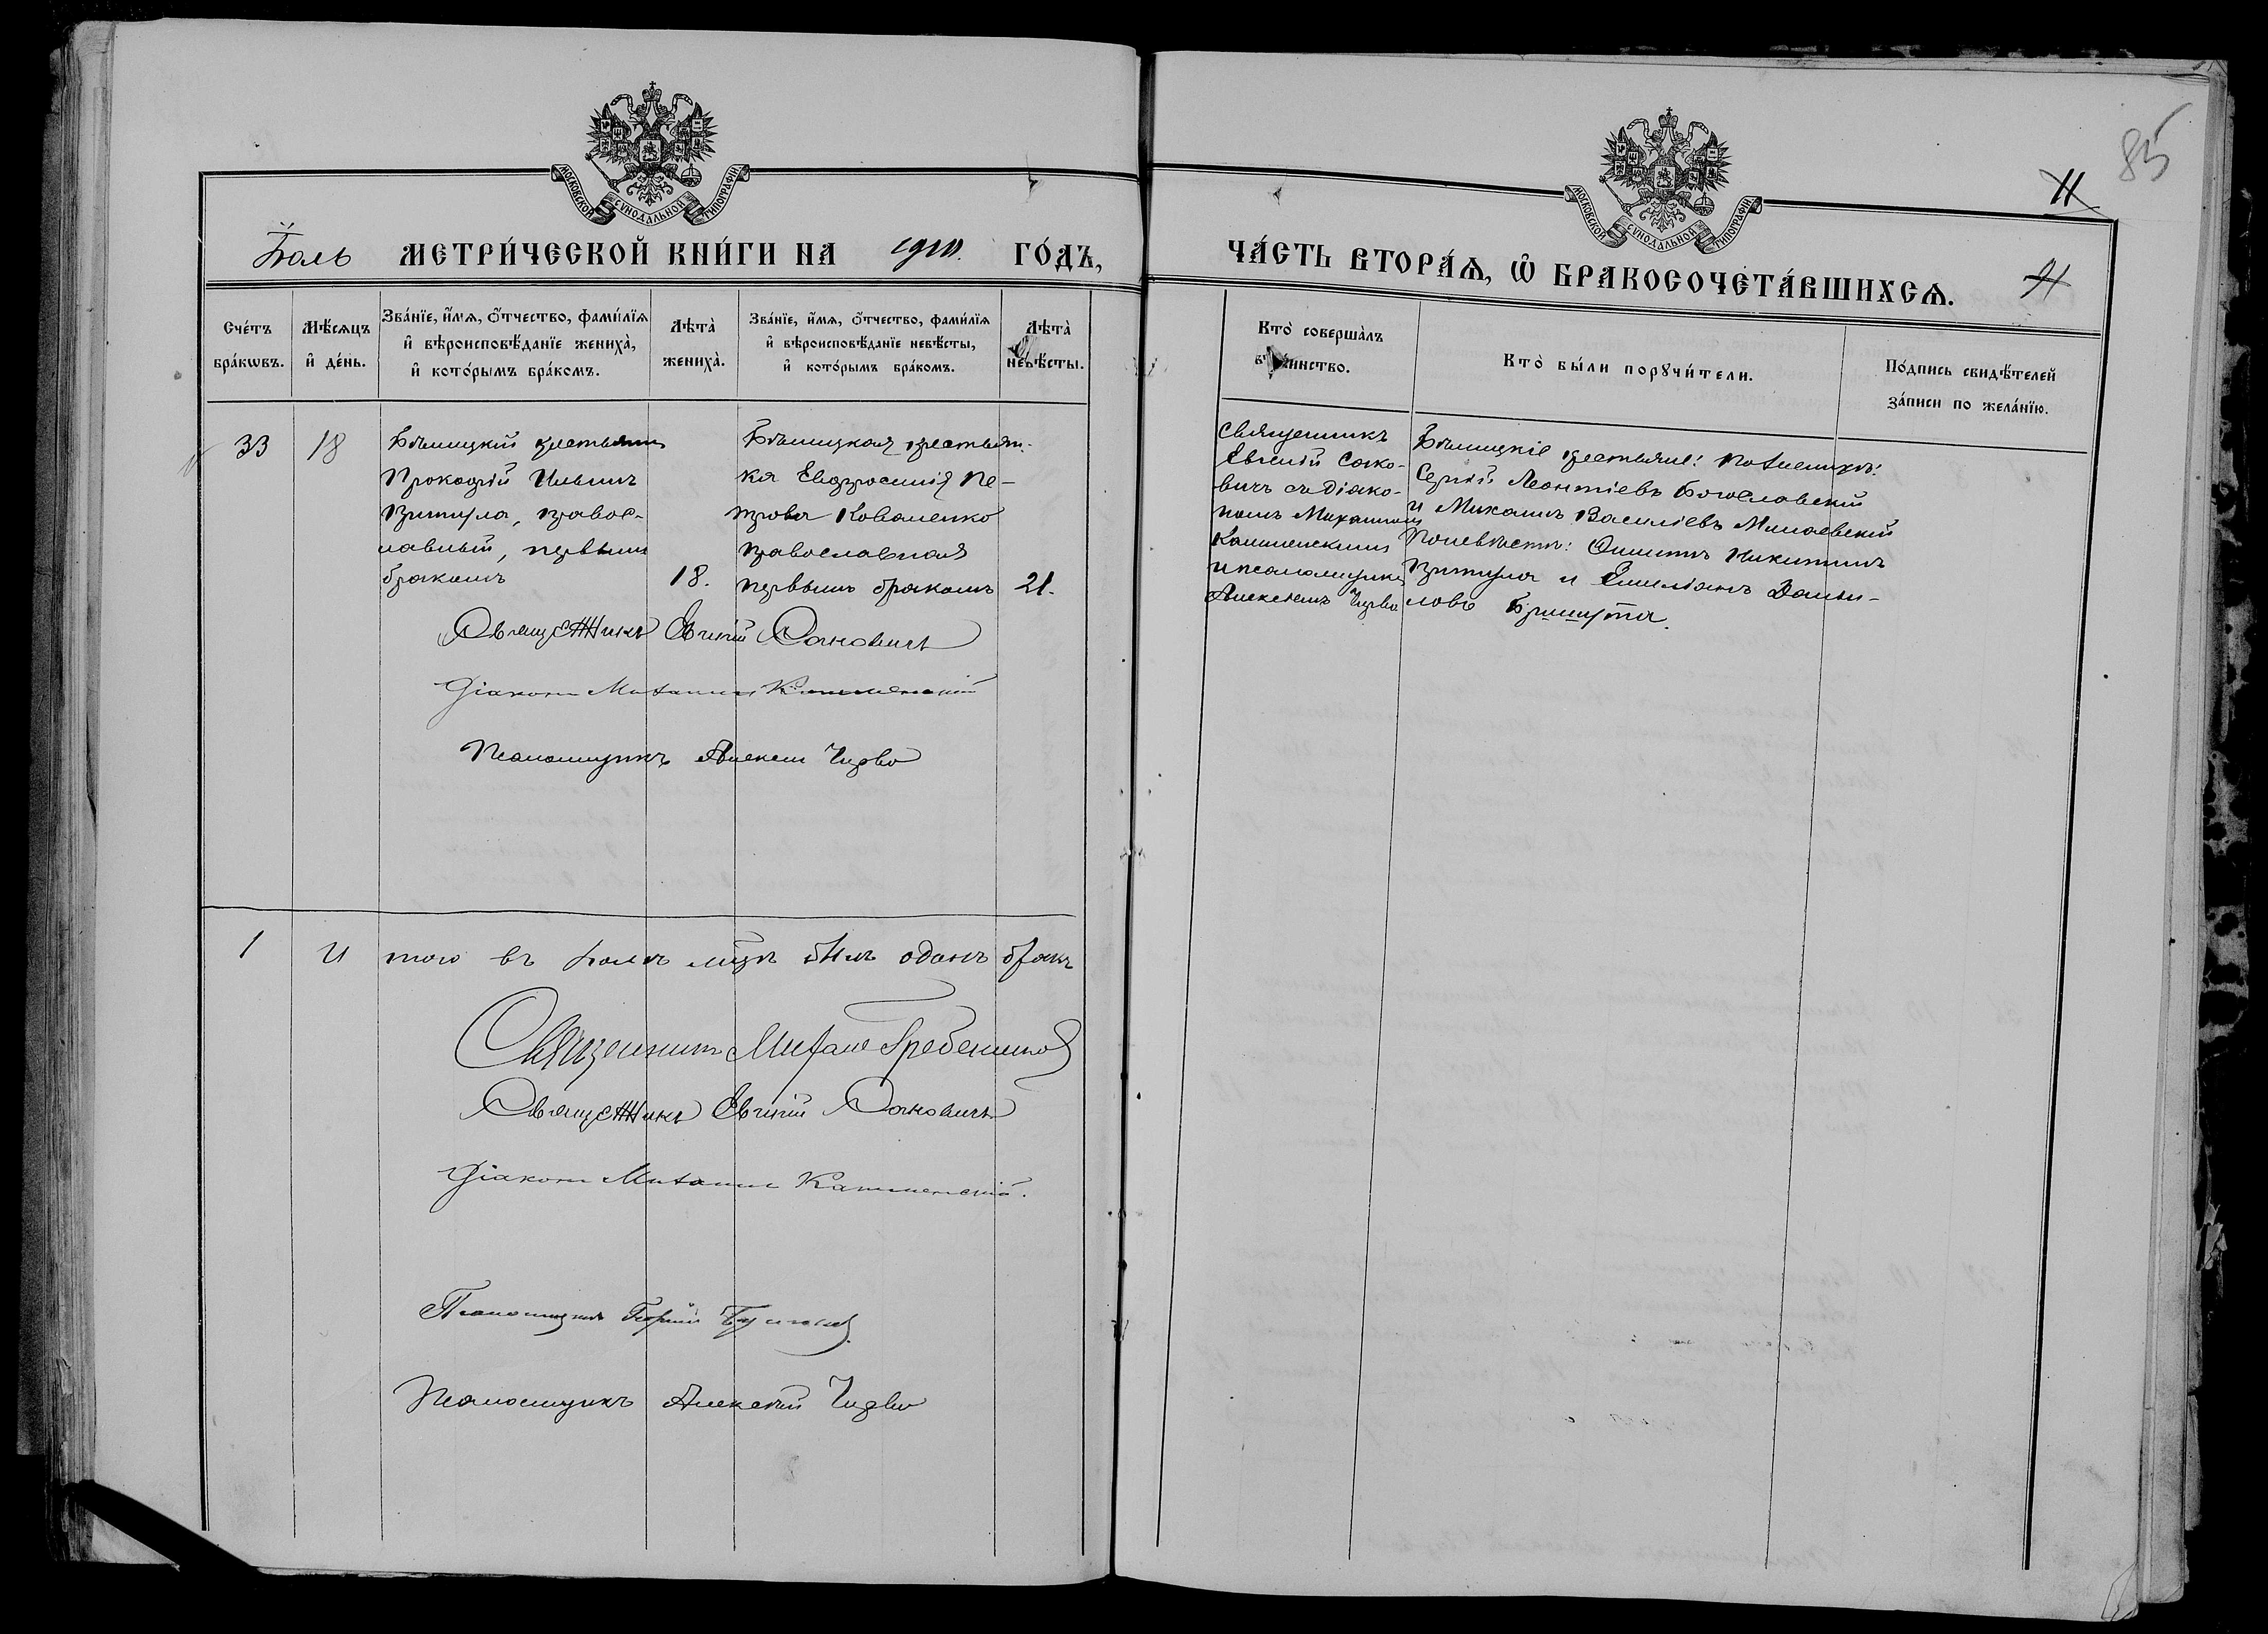 МОСКОВСКОЙ СѴНОДАЛЬНОЙ ТИПОГРАФІИ
Іюль МЕТРИ́ЧЕСКОЙ КНИ́ГИ НА 1910. ГО́ДЪ,
Сче́тъ бра́кωвъ.
Мѣ́сяцъ и҆ де́нь.
Зва́нїе, и҆́мѧ, ѻ҆́тчество, фами́лїѧ
и҆ вѣроисповѣ́данїе жениха̀,
и҆ кото́рымъ бра́комъ.
Лѣта̀ жениха̀.
Зва́нїе, и҆́мѧ, ѻ҆́тчество, фами́лїѧ
и҆ вѣроисповѣ́данїе невѣ́сты,
и҆ кото́рымъ бра́комъ.
Лѣта̀ невѣ́сты.
33
18
крестьянинъ
Прокофій Ильинъ
Притула, правос-
лавный, первымъ
бракомъ
18.
крестьян-
ка Евфросинія Пе-
трова Коваленко
православная
первымъ бракомъ
21.
Священникъ Евгеній Сакович
Діаконъ Михаилъ
Псаломщикъ Алексѣй
1 И того въ Іюлѣ мцѣ былъ одинъ бракъ
Священникъ Михаил Гребенников
Священникъ Евгеній Саковичъ
Діаконъ Михаилъ
Псаломщикъ Георгій
Псаломщикъ Алексѣй
85
11
МОСКОВСКОЙ СѴНОДАЛЬНОЙ ТИПОГРАФІИ
ЧА́СТЬ ВТОРА́Ѧ, Ѽ БРАКОСОЧЕТА́ВШИХСѦ.
Кто̀ соверша́лъ
таинство.
Кто̀ бы́ли порꙋчи́тели.
По́дпись свидѣ́телей
за́писи по жела́нїю.
Священникъ
Евгеній Сако-
вичъ съ діако-
номъ Михаиломъ
и псаломщикомъ
Алексѣемъ
крестьяне: По женихѣ:
Сергій Леонтіевъ Богославскій
и Михаилъ Василіевъ Минаевскій
По невѣстѣ: Никитинъ
Притула и Емеліанъ Дани-
ловъ